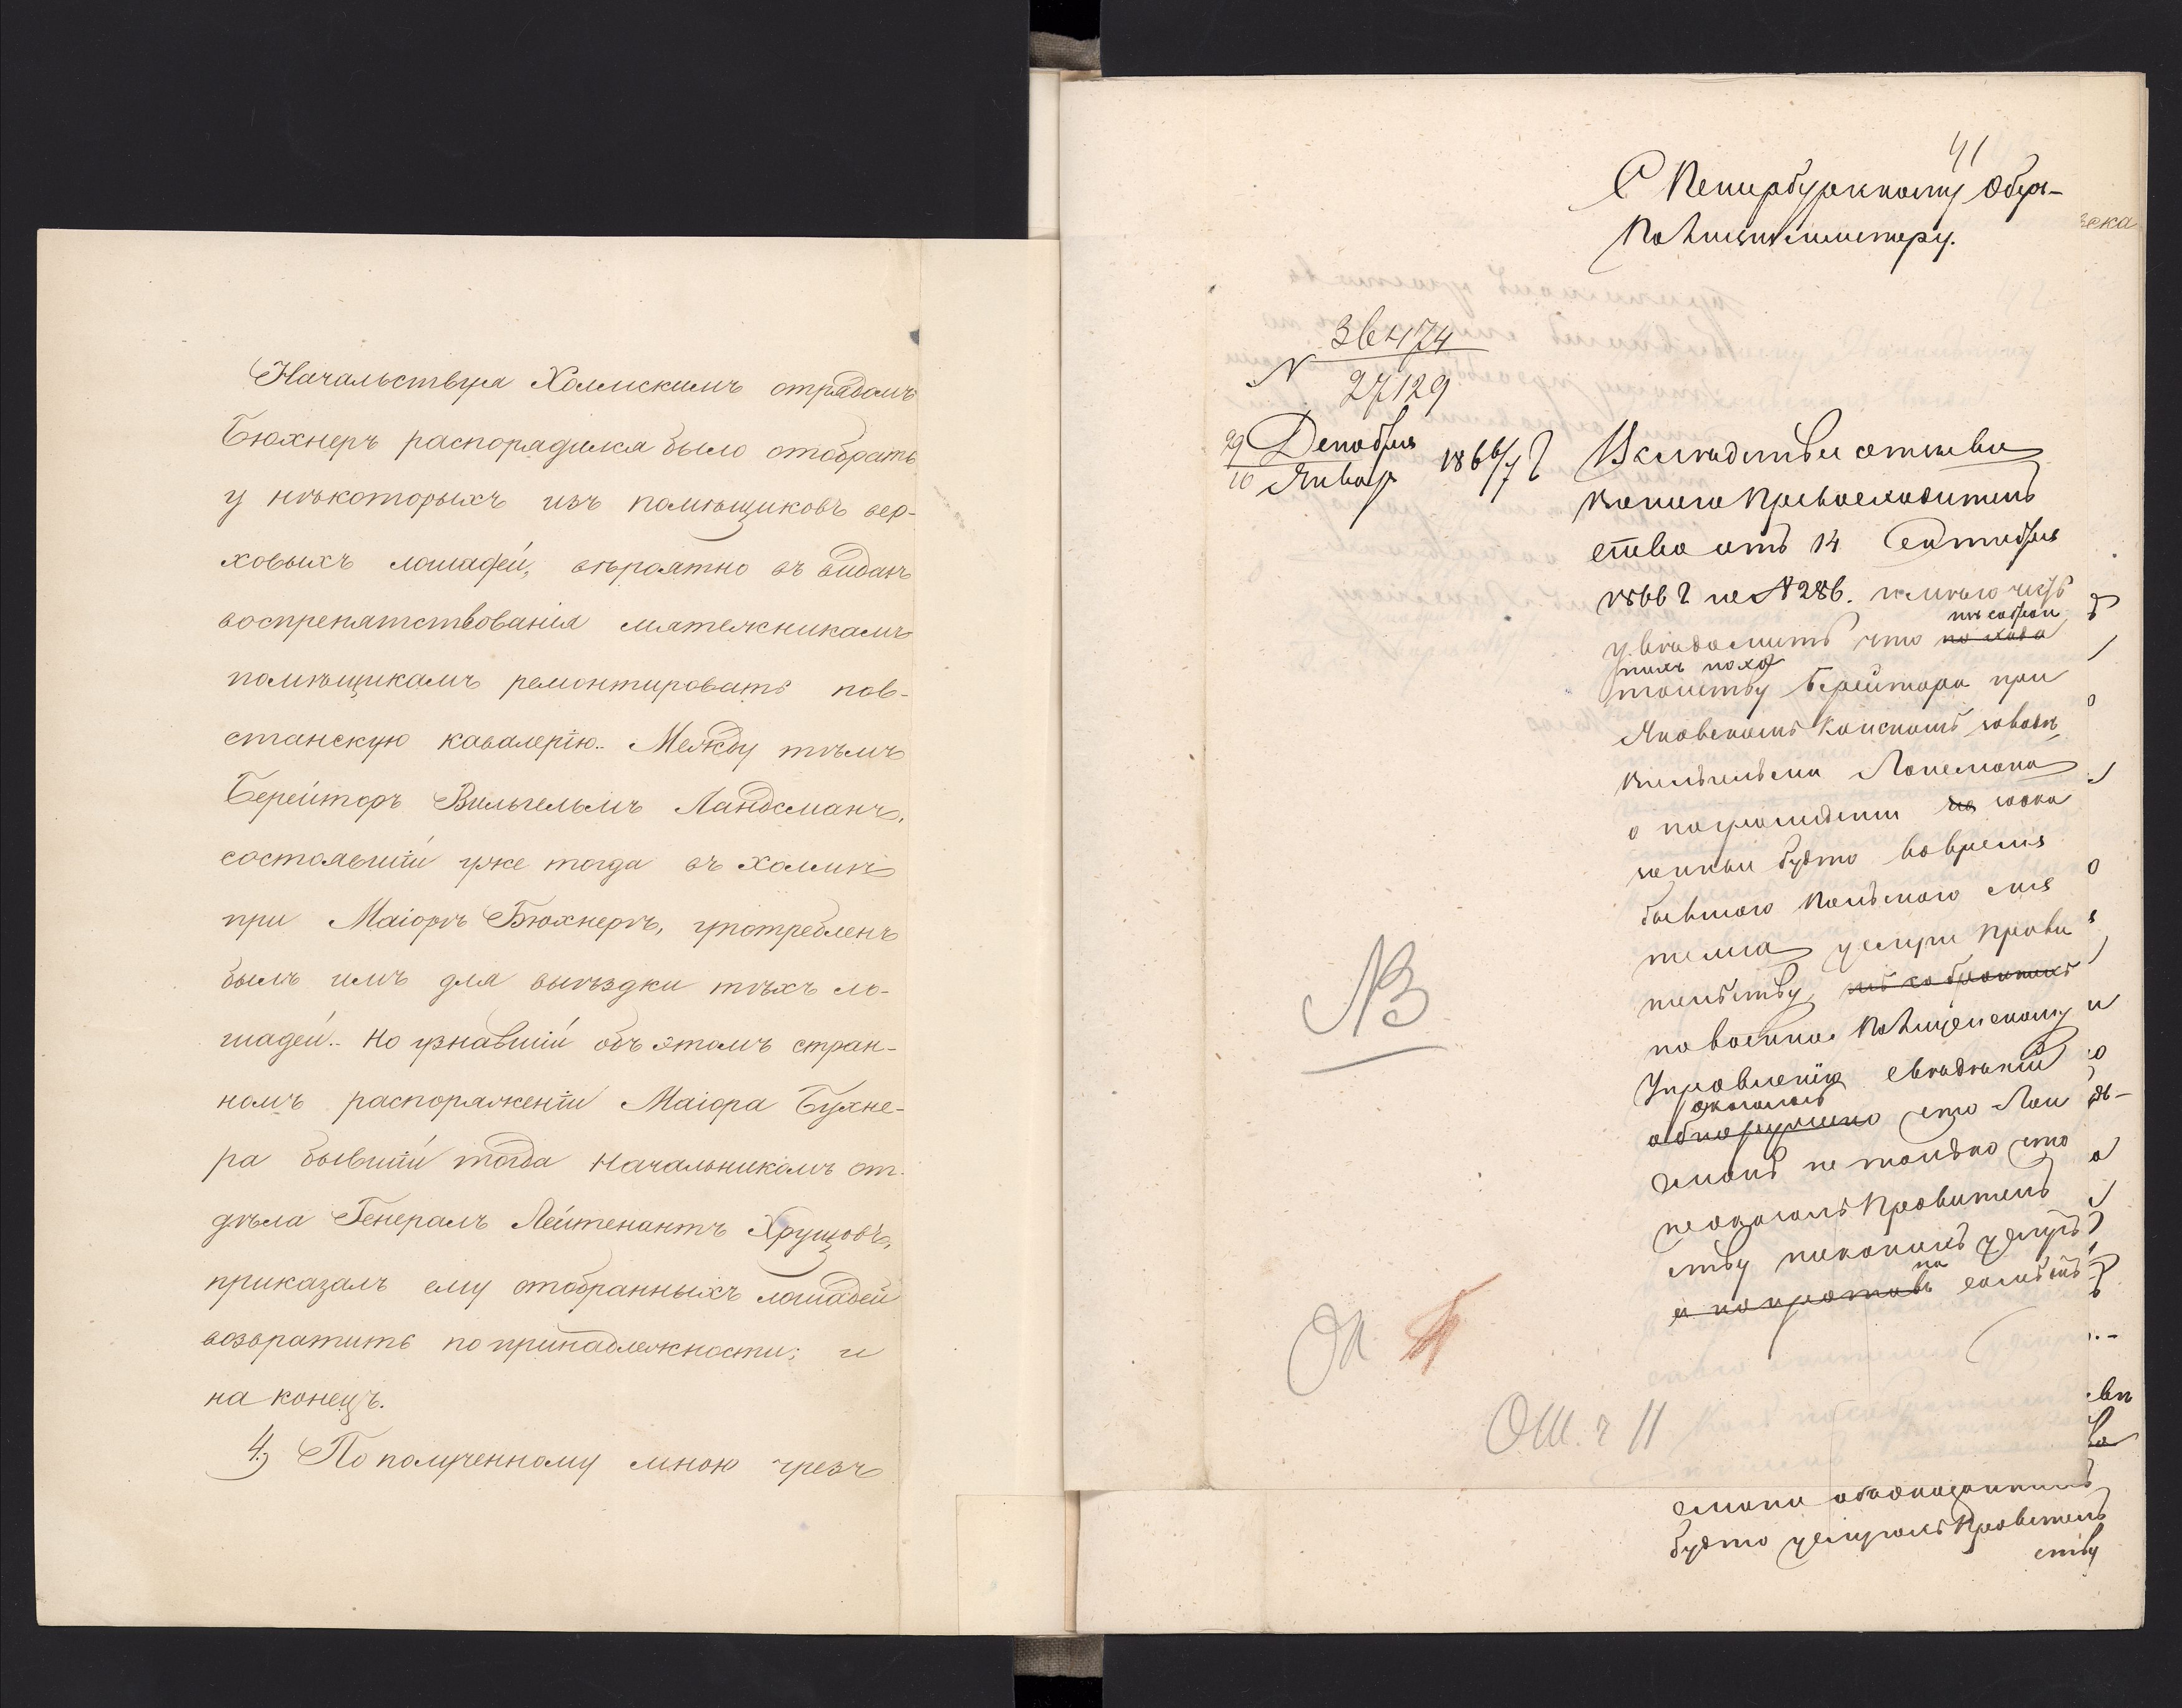 Начальствуя Холмскимъ отрядомъ
Бюхнеръ распорядился было отобрать
у нѣкоторыхъ изъ помѣщиковъ вер-
ховыхъ лошадей, вѣроятно въ видахъ
воспрепятствованія мятежникамъ
помѣщикамъ ремонтировать пов-
станскую кавалерію.. Между тѣмъ
Берейторъ Вильгельмъ Ландсманъ,
состоявшій уже тогда въ Холмѣ
при Маіорѣ Бюхнерѣ, употребленъ
былъ имъ для выѣздки тѣхъ ло-
шадей.. Но узнавшій объ этомъ стран-
номъ распоряженіи Маіора Бухне-
ра бывшій тогда Начальникомъ от-
дѣла Генералъ Лейтенантъ Хрущовъ,
приказалъ ему отобранныхъ лошадей
возвратить по принадлежности; и
на конецъ.
4.) По полученному мною чрезъ
41
С Петербургскому Обер-
Полицiймейстеру.
зека
№ 36474
27129
29 Декабря
10 Января 1866/7 г
Вслѣдствіи отзыва
Вашего Превосходитель
ства отъ 14 Сентября
1866 г за № 286. имѣю честь
увѣдомить что по хода
по собран
нымъ
тайству Берейтора при
Яновскомъ Конскомъ заводѣ
Вильгельма Лансмана
о награжденіи за оказа
нныи будто во время
бывшаго Польскаго мя
тежа услуги Прави
тельству
по Военно Полицейскому
Управленію свѣдѣній
оказалось
обнаружено что Лан
сманъ не только что
не оказалъ Правитель
ству никакихъ услугъ
а напротивъ
NB
Оп
ОШ. ч 11
смана объ оказанныхъ
будто услугахъ Правитель
ству